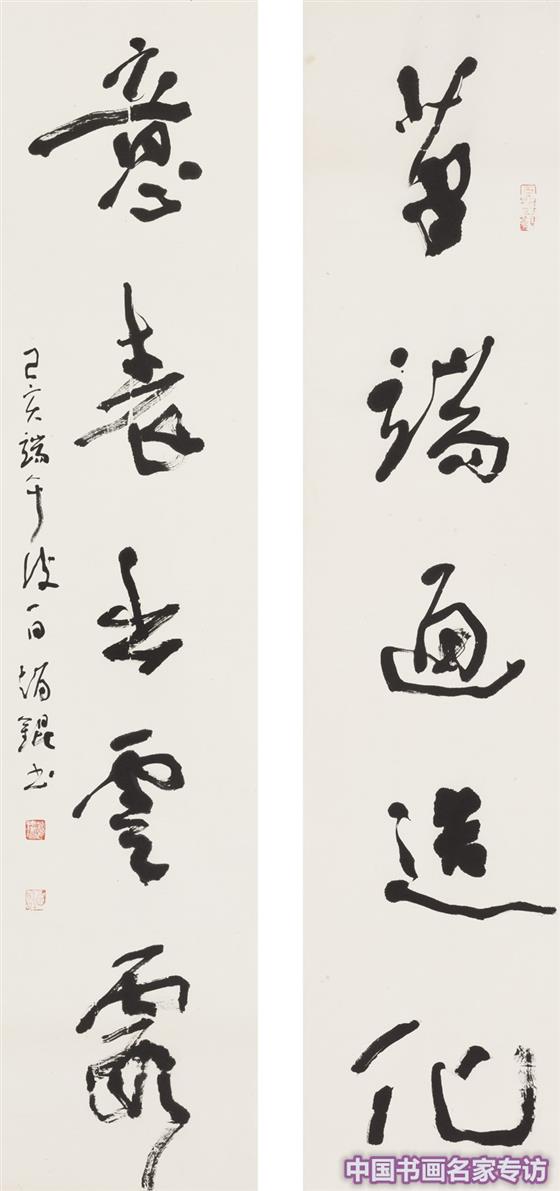 筆端通造化
意表出雲霞
己亥端午後一日 錕书
中国书画名家专访